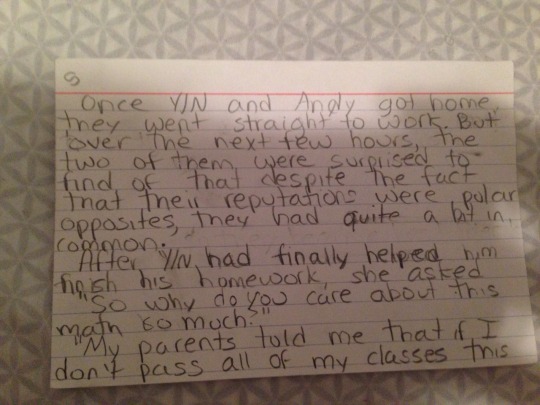 8
Once Y/N and Andy got home,
they went straight to work. But
over the next few hours, the
two of them were surprised to
find of that despite the fact
that their reputations were pular
opposites, they had quite a bit in
common.
After Y/N had finally helped him
finish his homework, she asked
"So why do you care about this
math so much?"
"My parents told me that if I
don't pass all of my classes this